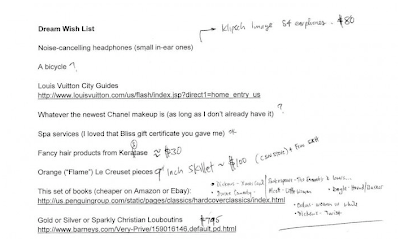 Dream Wish List
Klipsch Image S4 earphones - $80
Noise-cancelling headphones (small in-ear ones)
A bicycle ?
Louis Vuitton City Guides
http://www.louisvuitton.com/us/flash/index.jsp?direct1=home_entry_us
Whatever the newest Chanel makeup is (as long as I don't already have it) ?
Spa services (I loved that Bliss gift certificate you gave me) OK
Fancy hair products from Keratase ≈ $30
Orange ("Flame") Le Creuset pieces 9 inch skillet ~ $100
This set of books (cheaper on Amazon or Ebay):
http://us.penguingroup.com/static/pages/classics/hardcoverclassics/index.html
Gold or Silver or Sparkly Christian Louboutins $795
http://www.barneys.com/Very-Prive/159016146,default,pd.html